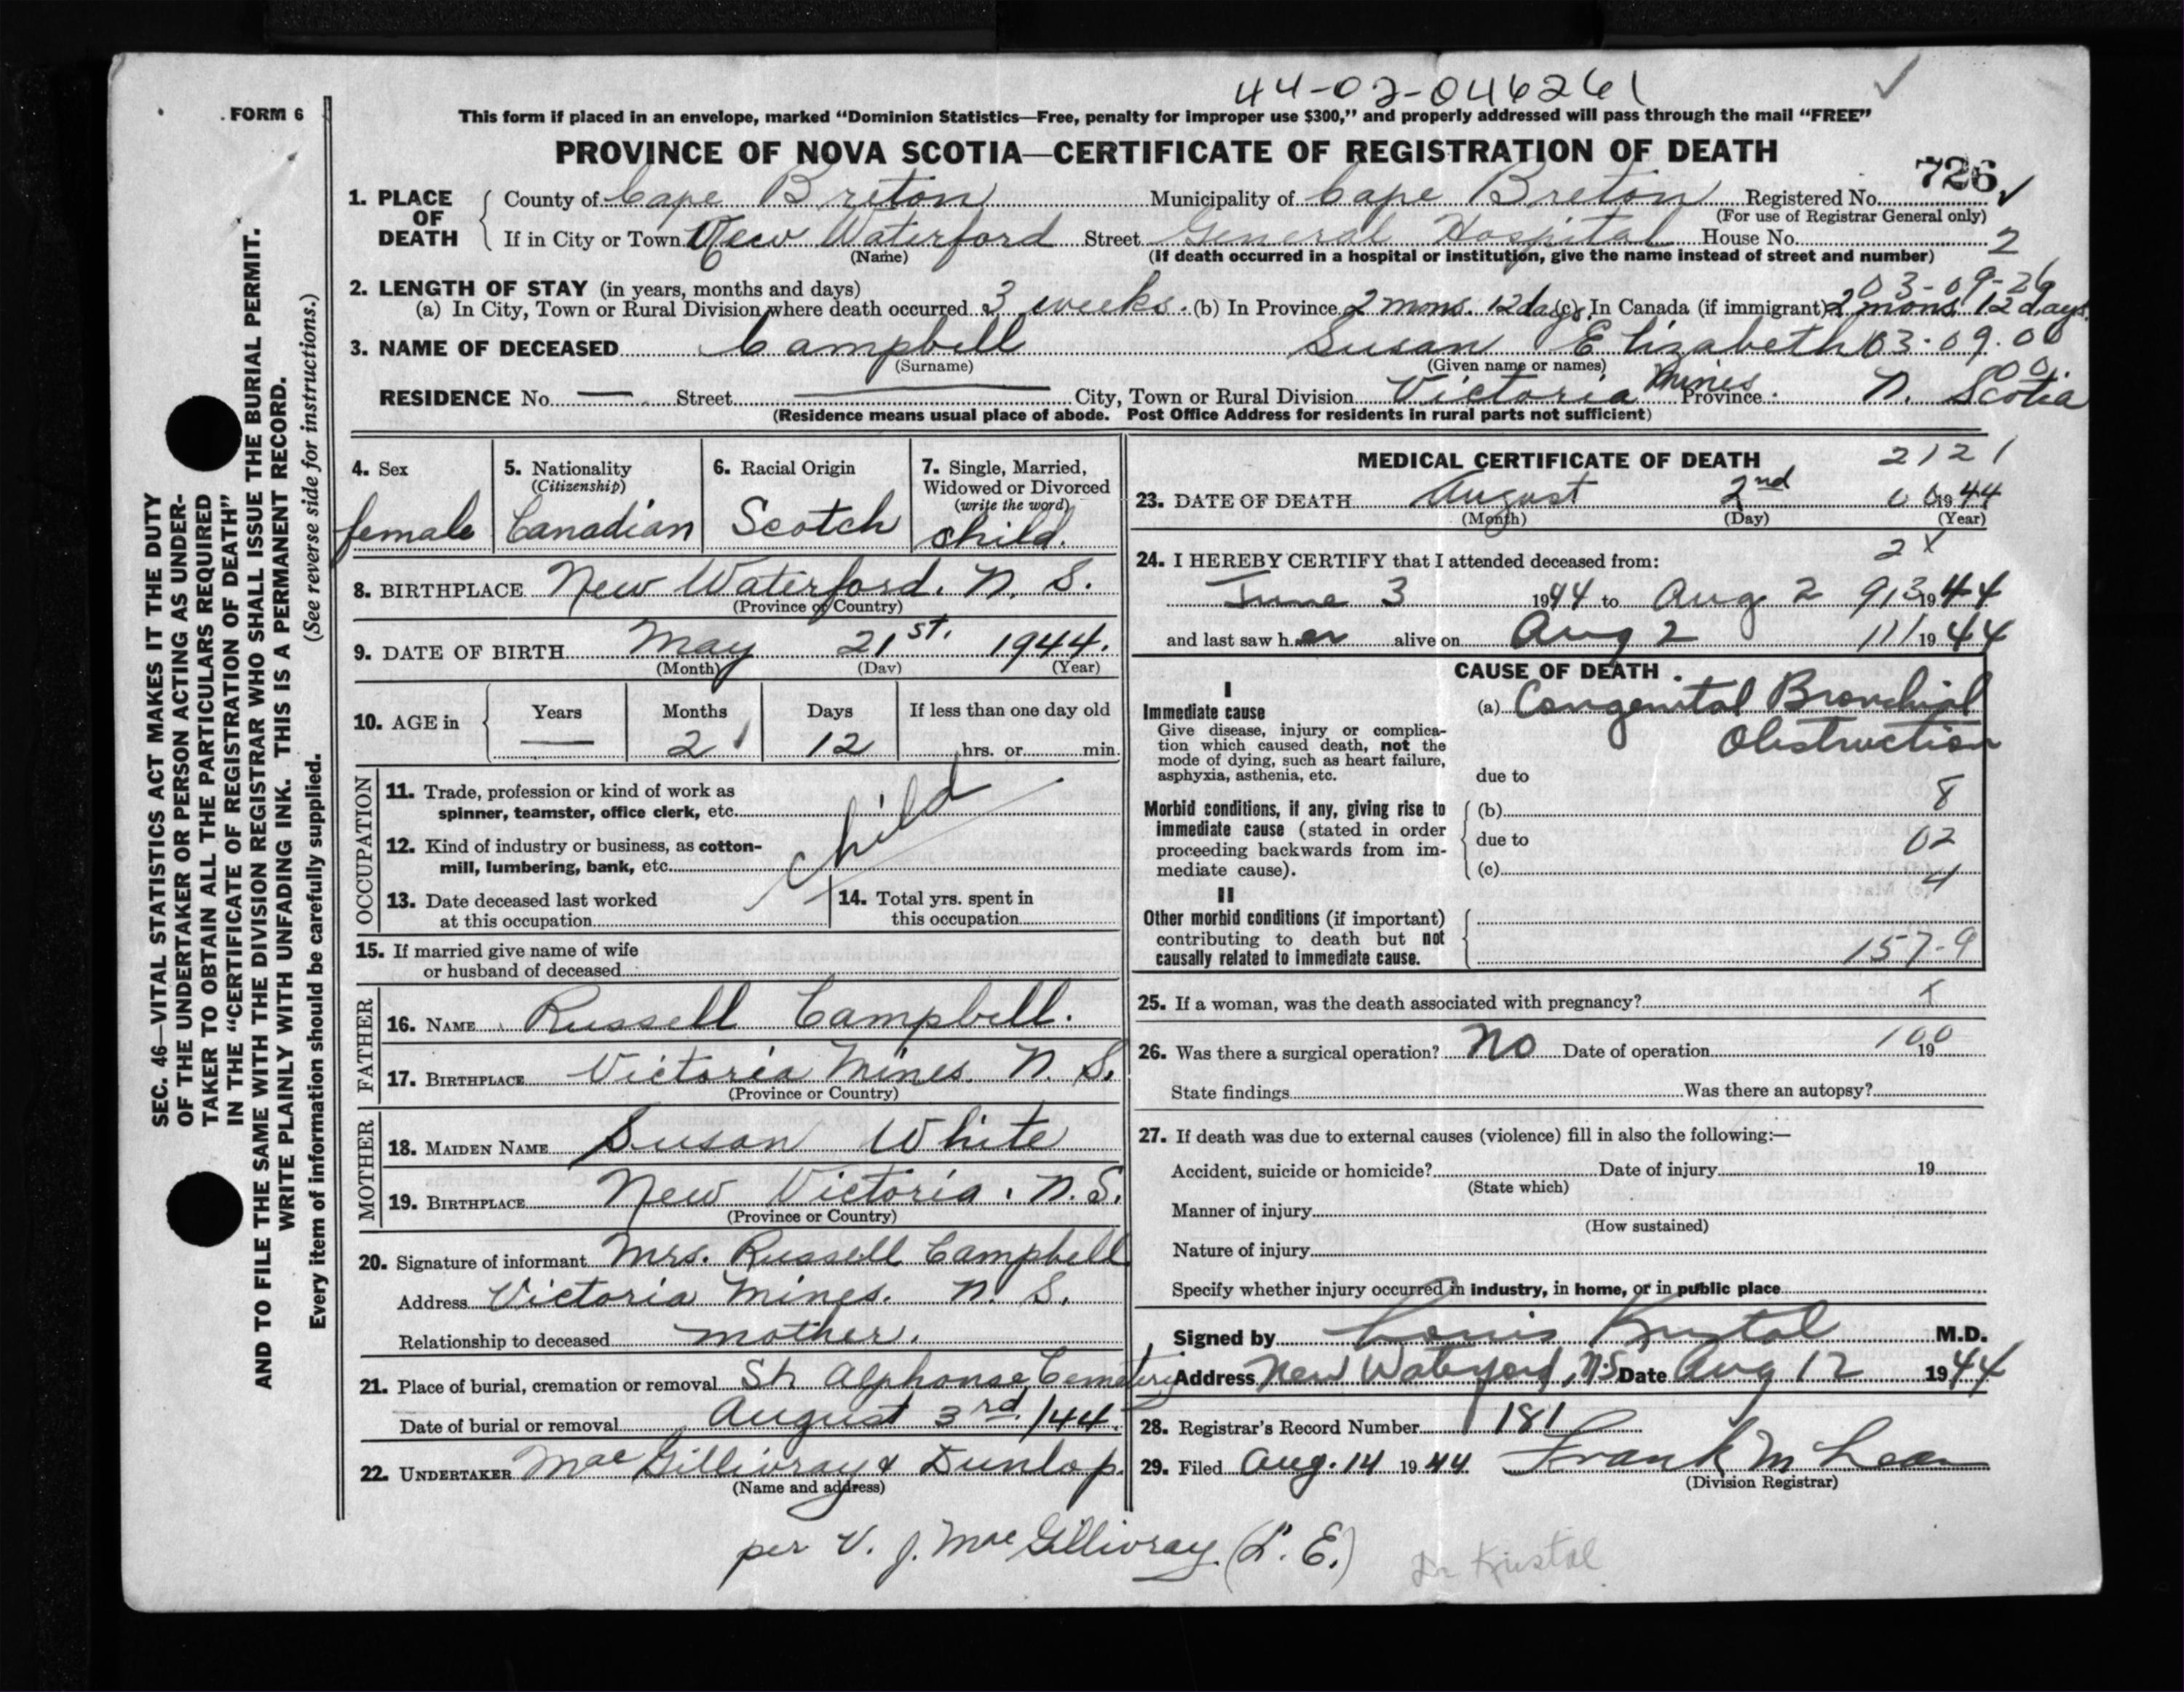 44-02-046261 ✓
FORM 6
This form if placed in an envelope, marked "Dominion Statistics—Free, penalty for improper use $300," and properly addressed will pass through the mail "FREE"
PROVINCE OF NOVA SCOTIA—CERTIFICATE OF REGISTRATION OF DEATH
726 ✓
1. PLACE OF DEATH { County of Cape Breton Municipality of Cape Breton Registered No.
(For use of Registrar General only)
If in City or Town New Waterford Street General Hospital House No. 2
(Name) (If death occurred in a hospital or institution, give the name instead of street and number)
2. LENGTH OF STAY (in years, months and days) 03-09-26
(a) In City, Town or Rural Division where death occurred 3 weeks. (b) In Province 2 mons. 12 days (c) In Canada (if immigrant) 2 mons 12 days.
3. NAME OF DECEASED Campbell Susan Elizabeth 03-09.00
(Surname) (Given name or names) 00
RESIDENCE No. — Street — City, Town or Rural Division Victoria Mines Province N. Scotia
(Residence means usual place of abode. Post Office Address for residents in rural parts not sufficient)
SEC. 46—VITAL STATISTICS ACT MAKES IT THE DUTY
OF THE UNDERTAKER OR PERSON ACTING AS UNDER-
TAKER TO OBTAIN ALL THE PARTICULARS REQUIRED
IN THE "CERTIFICATE OF REGISTRATION OF DEATH"
AND TO FILE THE SAME WITH THE DIVISION REGISTRAR WHO SHALL ISSUE THE BURIAL PERMIT.
WRITE PLAINLY WITH UNFADING INK. THIS IS A PERMANENT RECORD.
Every item of information should be carefully supplied. (See reverse side for instructions.)
4. Sex
female
5. Nationality
(Citizenship)
Canadian
6. Racial Origin
Scotch
7. Single, Married,
Widowed or Divorced
(write the word)
child.
8. BIRTHPLACE New Waterford. N. S.
(Province or Country)
9. DATE OF BIRTH May 21st. 1944.
(Month) (Day) (Year)
10. AGE in { Years Months Days If less than one day old
— 2 12 hrs. or min.
OCCUPATION
11. Trade, profession or kind of work as
spinner, teamster, office clerk, etc.
child
12. Kind of industry or business, as cotton-
mill, lumbering, bank, etc.
13. Date deceased last worked
at this occupation
14. Total yrs. spent in
this occupation
15. If married give name of wife
or husband of deceased
FATHER
16. NAME Russell Campbell.
17. BIRTHPLACE Victoria Mines. N. S.
(Province or Country)
MOTHER
18. MAIDEN NAME Susan White
19. BIRTHPLACE New Victoria. N.S.
(Province or Country)
20. Signature of informant Mrs. Russell Campbell
Address Victoria Mines. N. S.
Relationship to deceased mother.
21. Place of burial, cremation or removal St. Alphonse Cemetery
Date of burial or removal August 3rd/44.
22. UNDERTAKER MacGillivray & Dunlop.
(Name and address)
per V. J. MacGillivray. (L. E.)
MEDICAL CERTIFICATE OF DEATH 2121
23. DATE OF DEATH August 2nd 00 1944
(Month) (Day) (Year)
24. I HEREBY CERTIFY that I attended deceased from: 2 X
June 3 1944 to Aug 2 913 1944
and last saw her alive on Aug 2 111 1944
CAUSE OF DEATH
I
Immediate cause
Give disease, injury or complica-
tion which caused death, not the
mode of dying, such as heart failure,
asphyxia, asthenia, etc.
(a) Congenital Bronchial
Obstruction
due to
Morbid conditions, if any, giving rise to
immediate cause (stated in order
proceeding backwards from im-
mediate cause).
(b) 8
due to 02
(c) 4
II
Other morbid conditions (if important)
contributing to death but not
causally related to immediate cause.
157-9
25. If a woman, was the death associated with pregnancy? X
26. Was there a surgical operation? No Date of operation 100 19
State findings Was there an autopsy?
27. If death was due to external causes (violence) fill in also the following:—
Accident, suicide or homicide? Date of injury 19
(State which)
Manner of injury
(How sustained)
Nature of injury
Specify whether injury occurred in industry, in home, or in public place
Signed by Louis Kristal M.D.
Address New Waterford, N.S. Date Aug 12 1944
28. Registrar's Record Number 181
29. Filed Aug. 14 1944 Frank McLean
(Division Registrar)
Dr Kristal